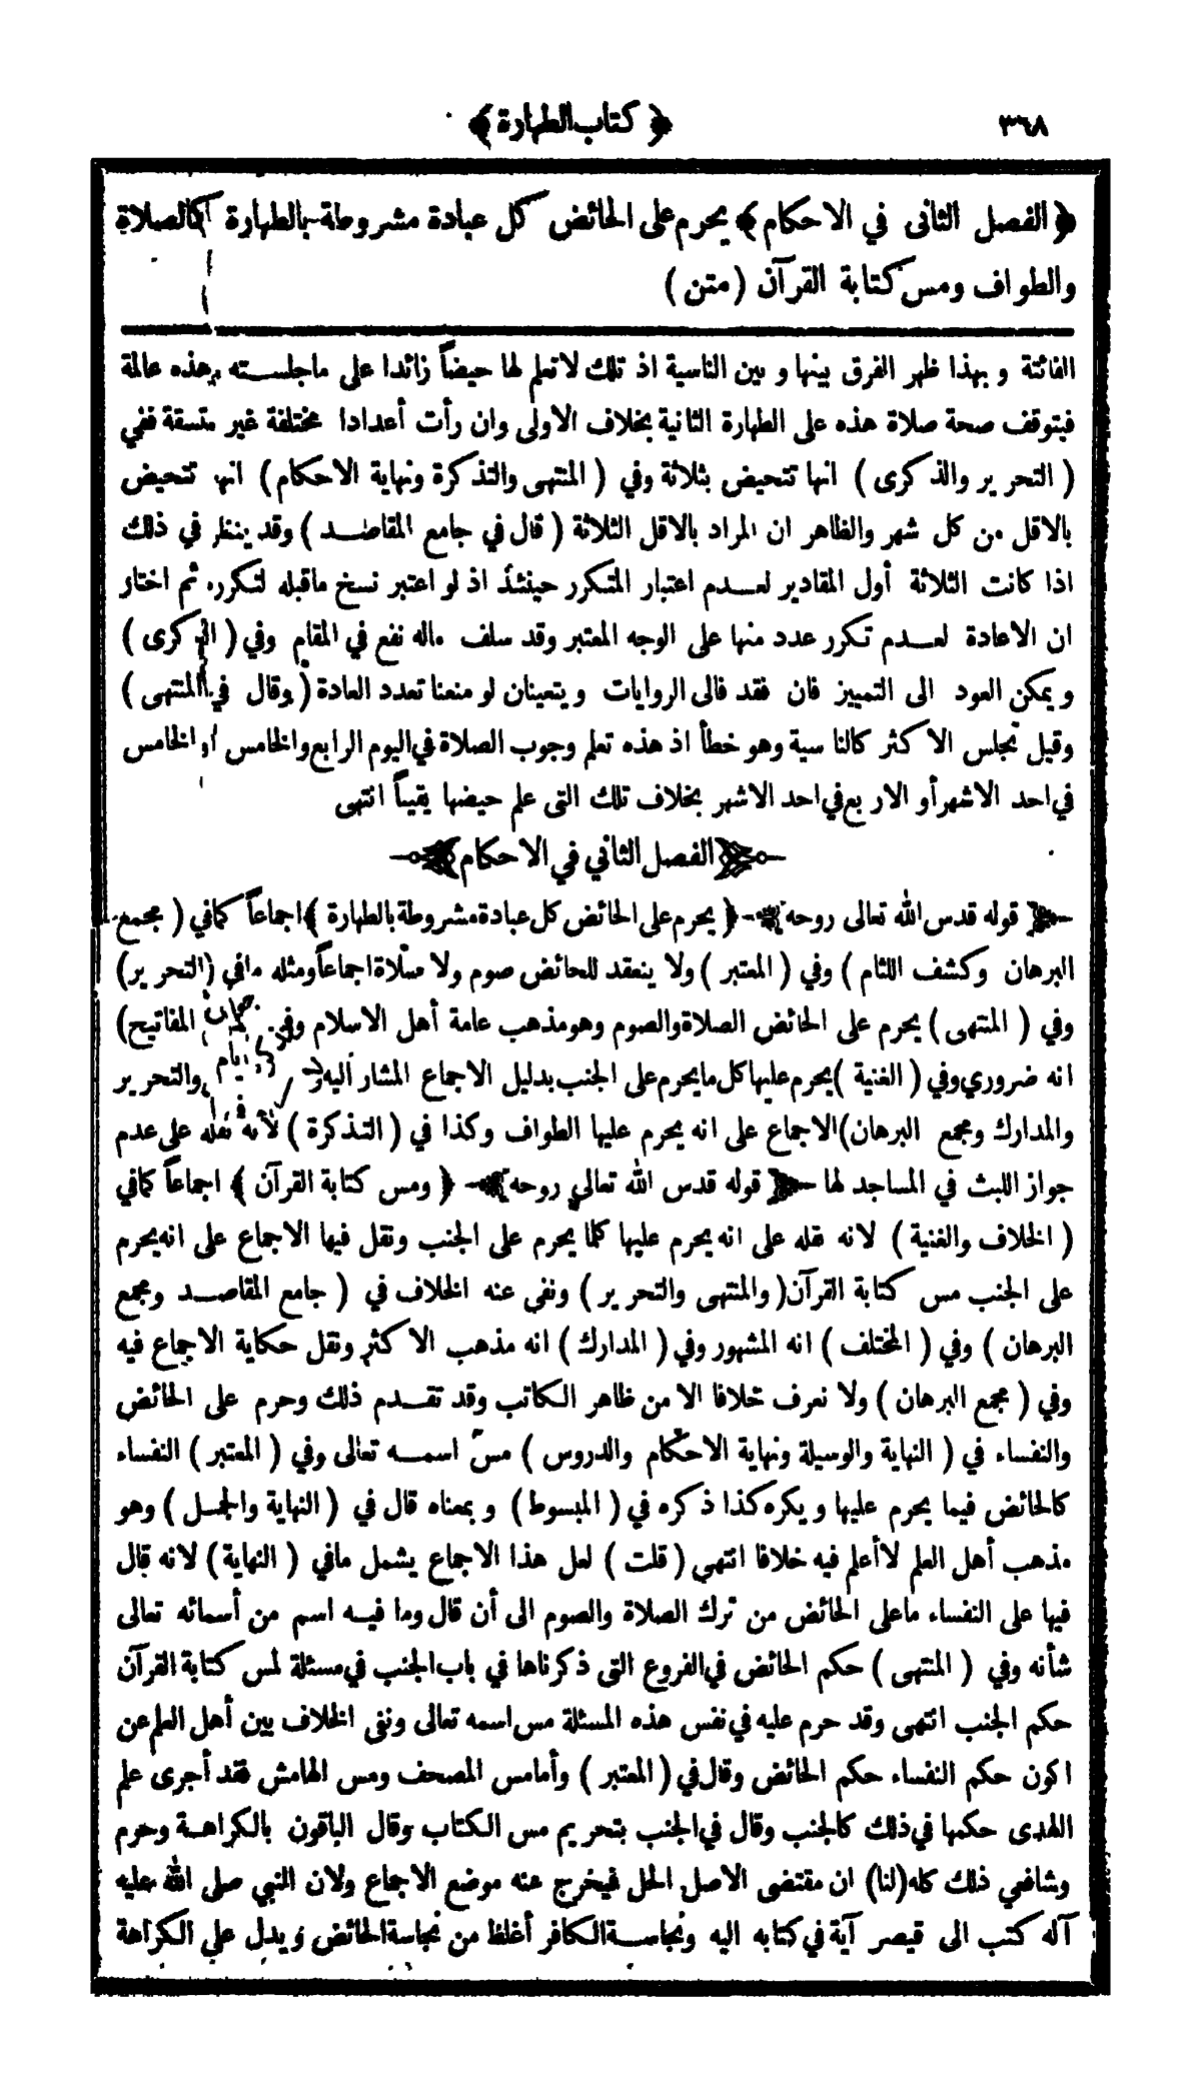 ٣٦٨
﴿ كتاب الطهارة ﴾
﴿ الفصل الثانى في الاحكام ﴾ يحرم على الحائض كل عبادة مشروطة بالطهارة كالصلاة
والطواف ومس كتابة القرآن ( متن )
الفائتة وبهذا ظهر الفرق بينها وبين الناسية اذ تلك لاتعلم لها حيضاً زائدا على ماجلسته وهذه عالمة
فيتوقف صحة صلاة هذه على الطهارة الثانية بخلاف الاولى وان رأت أعدادا مختلفة غير متسقة ففي
( التحرير والذكرى ) انها تتحيض بثلاثة وفي ( المنتهى والتذكرة ونهاية الاحكام ) انها تتحيض
بالاقل من كل شهر والظاهر ان المراد بالاقل الثلاثة ( قال في جامع المقاصد ) وقد ينظر في ذلك
اذا كانت الثلاثة أول المقادير لعدم اعتبار المتكرر حينئذ اذ لو اعتبر نسخ ماقبله لتكرره ثم اختار
ان الاعادة لعدم تكرر عدد منها على الوجه المعتبر وقد سلف ماله نفع في المقام وفي ( الذكرى )
ويمكن العود الى التمييز فان فقد فالى الروايات ويتعينان لو منعنا تعدد العادة ( وقال في المنتهى )
وقيل تجلس الاكثر كالناسية وهو خطأ اذ هذه تعلم وجوب الصلاة في اليوم الرابع والخامس او الخامس
في احد الاشهر أو الاربع في احد الاشهر بخلاف تلك التى علم حيضها يقيناً انتهى
﴿ الفصل الثاني في الاحكام ﴾
﴿ قوله قدس الله تعالى روحه ﴾ ﴿ يحرم على الحائض كل عبادة مشروطة بالطهارة ﴾ اجماعاً كما في ( مجمع
البرهان وكشف اللثام ) وفي ( المعتبر ) ولا ينعقد للحائض صوم ولا صلاة اجماعاً ومثله مافي ( التحرير )
وفي ( المنتهى ) يحرم على الحائض الصلاة والصوم وهو مذهب عامة أهل الاسلام وفي المفاتيح )
انه ضروري وفي ( الغنية ) يحرم عليها كل مايحرم على الجنب بدليل الاجماع المشار اليه والتحرير
والمدارك ومجمع البرهان ) الاجماع على انه يحرم عليها الطواف وكذا في ( التذكرة ) لأنه نقله على عدم
جواز اللبث في المساجد لها ﴿ قوله قدس الله تعالي روحه ﴾ ﴿ ومس كتابة القرآن ﴾ اجماعاً كما في
( الخلاف والغنية ) لانه نقله على انه يحرم عليها كلما يحرم على الجنب ونقل فيها الاجماع على انه يحرم
على الجنب مس كتابة القرآن ( والمنتهى والتحرير ) ونفى عنه الخلاف في ( جامع المقاصد ومجمع
البرهان ) وفي ( المختلف ) انه المشهور وفي ( المدارك ) انه مذهب الاكثر ونقل حكاية الاجماع فيه
وفي ( مجمع البرهان ) ولا نعرف خلافا الا من ظاهر الكاتب وقد تقدم ذلك وحرم على الحائض
والنفساء في ( النهاية والوسيلة ونهاية الاحكام والدروس ) مس اسمه تعالى وفي ( المعتبر ) النفساء
كالحائض فيما يحرم عليها ويكره كذا ذكره في ( المبسوط ) وبمعناه قال في ( النهاية والجمل ) وهو
مذهب أهل العلم لا أعلم فيه خلافا انتهي ( قلت ) لعل هذا الاجماع يشمل مافي ( النهاية ) لانه قال
فيها على النفساء ماعلى الحائض من ترك الصلاة والصوم الى أن قال وما فيه اسم من أسمائه تعالى
شأنه وفي ( المنتهى ) حكم الحائض في الفروع التى ذكرناها في باب الجنب في مسئلة لمس كتابة القرآن
حكم الجنب انتهى وقد حرم عليه في نفس هذه المسئلة مس اسمه تعالى ونفى الخلاف بين أهل العلم عن
اكون حكم النفساء حكم الحائض وقال في ( المعتبر ) وأمامس المصحف ومس الهامش فقد أجرى علم
الهدى حكمها في ذلك كالجنب وقال في الجنب بتحريم مس الكتاب وقال الباقون بالكراهة وحرم
وشافعي ذلك كله ( لنا ) ان مقتضى الاصل الحل فيخرج عنه موضع الاجماع ولان النبي صلى الله عليه
آله كتب الى قيصر آية في كتابه اليه ونجاسة الكافر أغلظ من نجاسة الحائض ويدل علي الكراهة